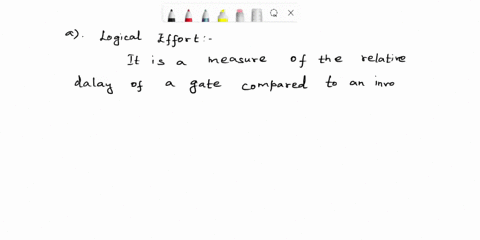 a). Logical Effort:-
It is a measure of the relative
dalay of a gate compared to an inve